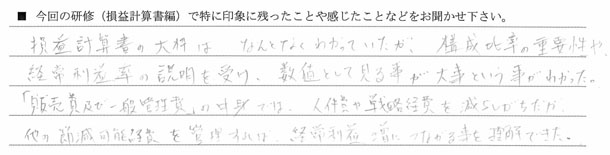 ■ 今回の研修（損益計算書編）で特に印象に残ったことや感じたことなどをお聞かせ下さい。
損益計算書の大枠は なんとなくわかっていたが、構成比率の重要性や
経常利益率の説明を受け、数値として見る事が大事という事がわかった。
「販売費及び一般管理費」の中身では、人件費や戦略経費を減らしがちだが、
他の削減可能経費を管理すれば、経常利益増につながる事を理解できた。